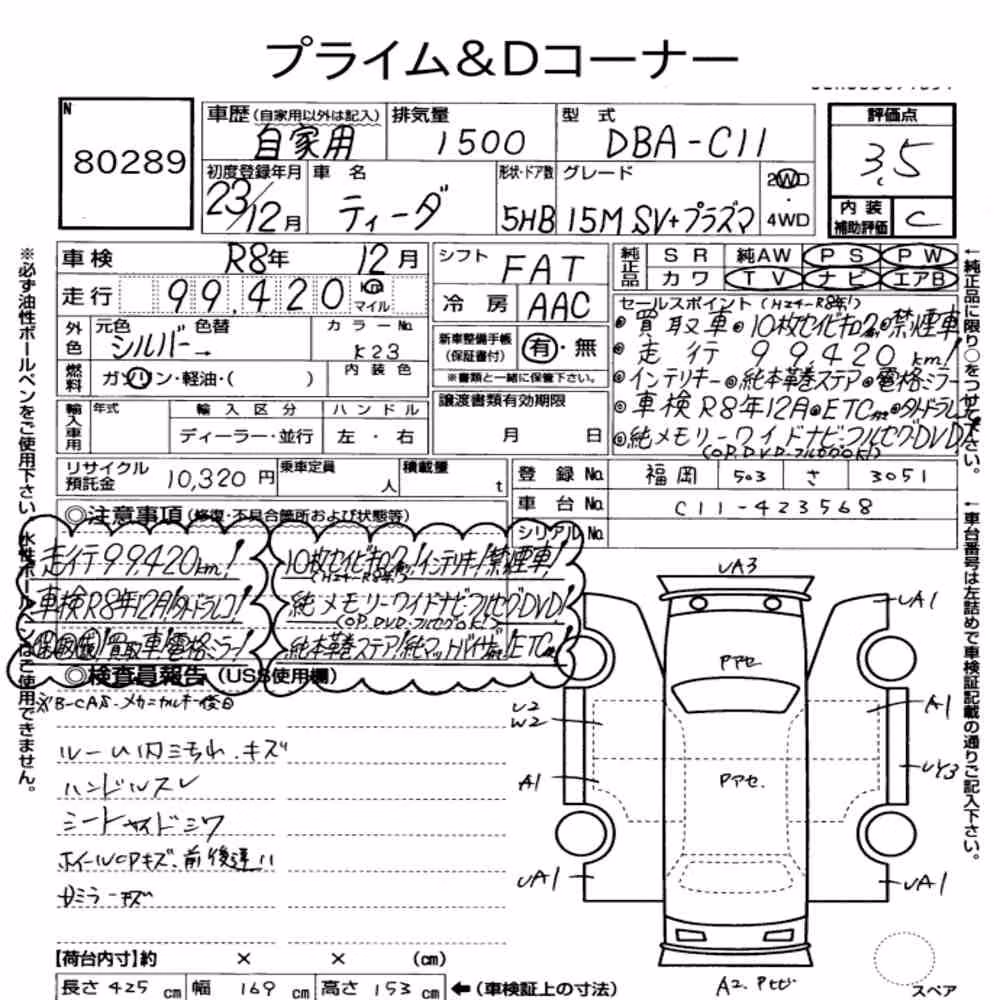 プライム&Dコーナー
N
80289
車歴(自家用以外は記入) 自家用
排気量 1500
型式 DBA-C11
評価点 3.5
内装補助評価 C
初度登録年月 23/12月
車名 ティーダ
形状・ドア数 5HB
グレード 15M SV+プラズマ
2WD
4WD
車検 R8年 12月
走行 99,420 km マイル
外色 元色 色替 シルバー→
カラーNo. K23
内装色
燃料 ガソリン・軽油・( )
輸入車用 年式 輸入区分 ハンドル
ディーラー・並行 左・右
シフト FAT
冷房 AAC
新車整備手帳(保証書付) 有・無
※書類と一緒に保管下さい。
譲渡書類有効期限
月 日
純正品 SR 純AW PS PW
カワ TV ナビ エアB
セールスポイント(H24~R8年!)
●買取車●10枚セイビキロク●禁煙車
●走行 99,420km!
●インテリキー●純本革巻ステア●電格ミラー
●車検R8年12月●ETC●タドラレコ!
●純メモリーワイドナビ・フルセグDVD!
(OP.DVD.フルセグOK!)
リサイクル預託金 10,320円
乗車定員 人
積載量 t
登録No. 福岡 503 さ 3051
車台No. C11-423568
シリアルNo.
◎注意事項(修復・不具合箇所および状態等)
走行99,420km!
車検R8年12月!タドラレコ!
買取車!電格ミラー!
10枚セイビキロク!インテリキー!禁煙車!
(H24~R8年!)
純メモリーワイドナビフルセグDVD!
(OP.DVD.フルセグOK!)
純本革巻ステア!純マット バイザー!ETC
◎検査員報告(USS使用欄)
※B-CAS・メカニカルキー後日
ルーム内ヨゴレ、キズ
ハンドルスレ
シートサイドシワ
ホイールCPキズ、前後違い
Dミラーキズ
【荷台内寸】約 × × (cm)
長さ 425cm 幅 169cm 高さ 153cm ←(車検証上の寸法)
UA3
UA1
Pアセ
U2
W2
A1
A1
UY3
Pアセ.
UA1
UA1
A2. Pセビ
スペア
※必ず油性ボールペンをご使用下さい
ご使用できません。
←純正品に限り○をつけて下さい。
←車台番号は左詰めで車検証記載の通りご記入下さい。